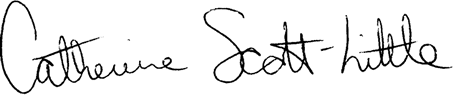 Catherine Scott-Little